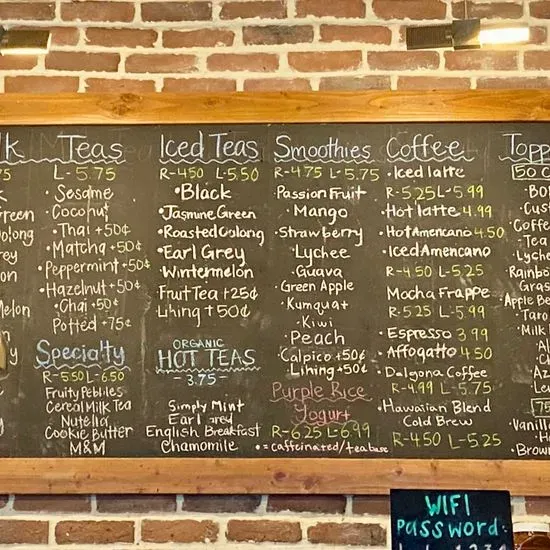 k
Teas
L-5.75
• Sesame
• Coconut
• Thai +50¢
• Matcha +50¢
• Peppermint +50¢
• Hazelnut +50¢
• Chai +50¢
Potted +75¢
Specialty
R-5.50 L-6.50
Fruity Pebbles
Cereal Milk Tea
Nutella
Cookie Butter
M&M
Iced Teas
R-4.50 L-5.50
• Black
• Jasmine Green
• Roasted Oolong
• Earl Grey
Wintermelon
Fruit Tea +25¢
Lihing +50¢
ORGANIC
HOT TEAS
- 3.75 -
Simply Mint
Earl Gred
English Breakfast
Chamomile
Smoothies
R-4.75 L-5.75
Passion Fruit
• Mango
• Strawberry
• Lychee
• Guava
• Green Apple
• Kumquat
• Kiwi
• Peach
• Calpico +50¢
• Lihing +50¢
Purple Rice
Yogurt
R-6.25 L-6.99
• = caffeinated/tea base
Coffee
• Iced latte
R-5.25 L-5.99
Hot latte 4.99
• Hot Americano 4.50
• Iced Americano
R-4.50 L-5.25
Mocha Frappe
R-5.25 L-5.99
• Espresso 3.99
• Affogatto 4.50
• Dalgona Coffee
R-4.99 L-5.75
• Hawaiian Blend
Cold Brew
R-4.50 L-5.25
Topp
50 C
Bo
Cust
Coffee
Tea
Lyche
Rainbo
Gras
Apple Be
Taro
Milk
Al
Ch
Az
Le
75
Vanilla
H
• Brown
WIFI
Password: